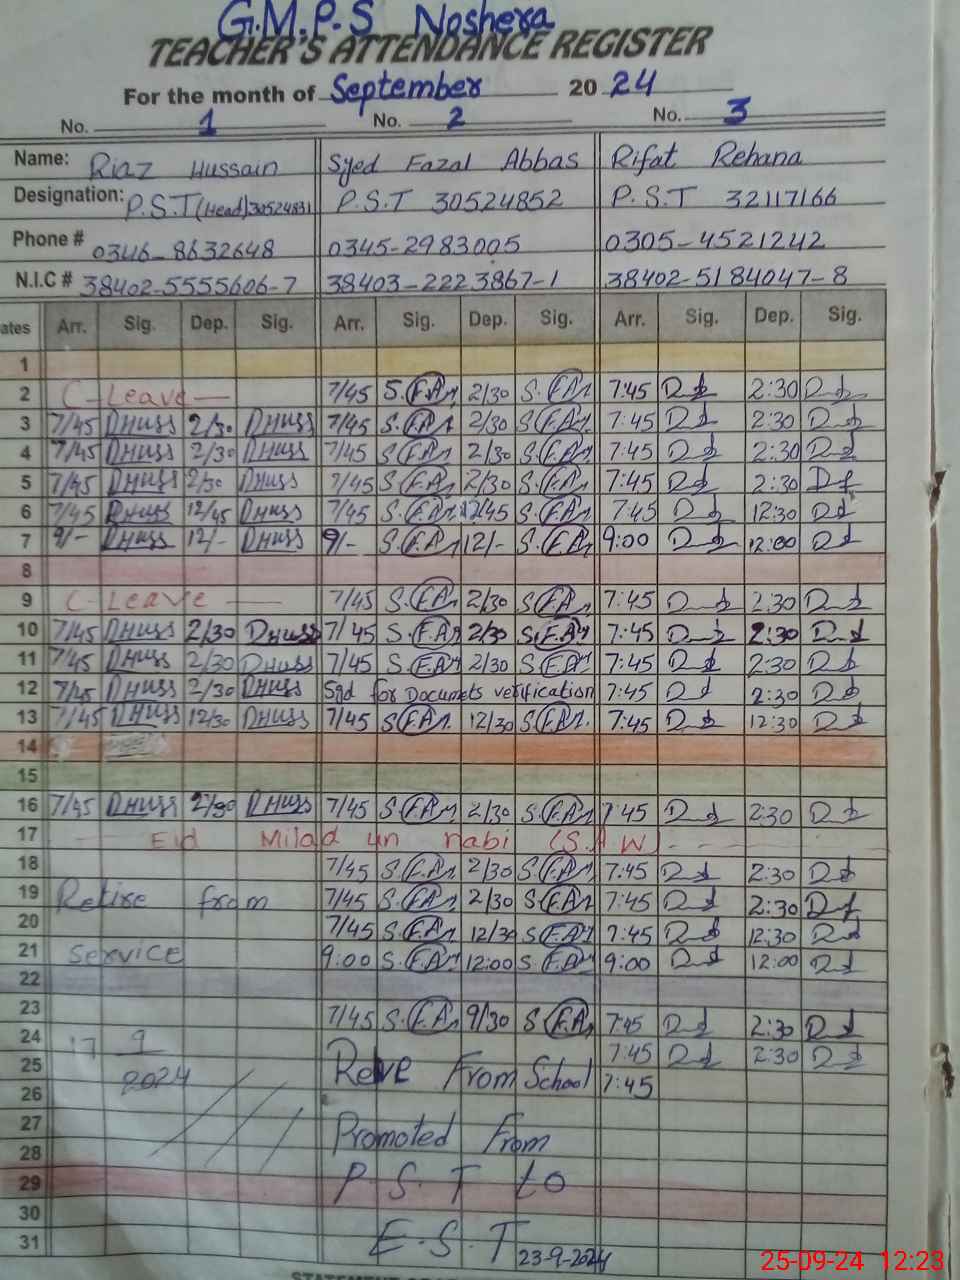 G.M.P.S Noshera
TEACHER'S ATTENDANCE REGISTER
For the month of September 20 24
No. 1 No. 2 No. 3
Name: Riaz Hussain Syed Fazal Abbas Rifat Rehana
Designation: P.S.T (Head) 30524831 P.S.T 30524852 P.S.T 32117166
Phone # 0346-8632648 0345-2983005 0305-4521242
N.I.C # 38402-5555606-7 38403-2223867-1 38402-5184047-8
ates Arr. Sig. Dep. Sig. Arr. Sig. Dep. Sig. Arr. Sig. Dep. Sig.
1
2 C-Leave 7/45 S.F.A 2/30 S.F.A 7:45 2:30
3 7/45 DHUSS 2/30 DHUSS 7/45 S.F.A 2/30 S.F.A 7:45 2:30
4 7/45 DHUSS 2/30 DHUSS 7/45 S.F.A 2/30 S.F.A 7:45 2:30
5 7/45 DHUSS 2/30 DHUSS 7/45 S.F.A 2/30 S.F.A 7:45 2:30
6 7/45 DHUSS 12/45 DHUSS 7/45 S.F.A 12/45 S.F.A 7:45 12:30
7 9/- DHUSS 12/- DHUSS 9/- S.F.A 12/- S.F.A 9:00 12:00
8
9 C-Leave 7/45 S.F.A 2/30 S.F.A 7:45 2:30
10 7/45 DHUSS 2/30 DHUSS 7/45 S.F.A 2/30 S.F.A 7:45 2:30
11 7/45 DHUSS 2/30 DHUSS 7/45 S.F.A 2/30 S.F.A 7:45 2:30
12 7/45 DHUSS 2/30 DHUSS Sgd for Documets verification 7:45 2:30
13 7/45 DHUSS 12/30 DHUSS 7/45 S.F.A 12/30 S.F.A 7:45 12:30
14
15
16 7/45 DHUSS 2/30 DHUSS 7/45 S.F.A 2/30 S.F.A 7:45 2:30
17 Eid Milad un nabi (S.A.W)
18 7/45 S.F.A 2/30 S.F.A 7:45 2:30
19 Retire from 7/45 S.F.A 2/30 S.F.A 7:45 2:30
20 7/45 S.F.A 12/30 S.F.A 7:45 12:30
21 Service 9:00 S.F.A 12:00 S.F.A 9:00 12:00
22
23 7/45 S.F.A 9/30 S.F.A 7:45 2:30
24 17 9 7:45 2:30
25 2024 From School 7:45
26
27 Promoted From
28
29 P S T to
30
31 E.S.T 23-9-2024
25-09-24 12:23